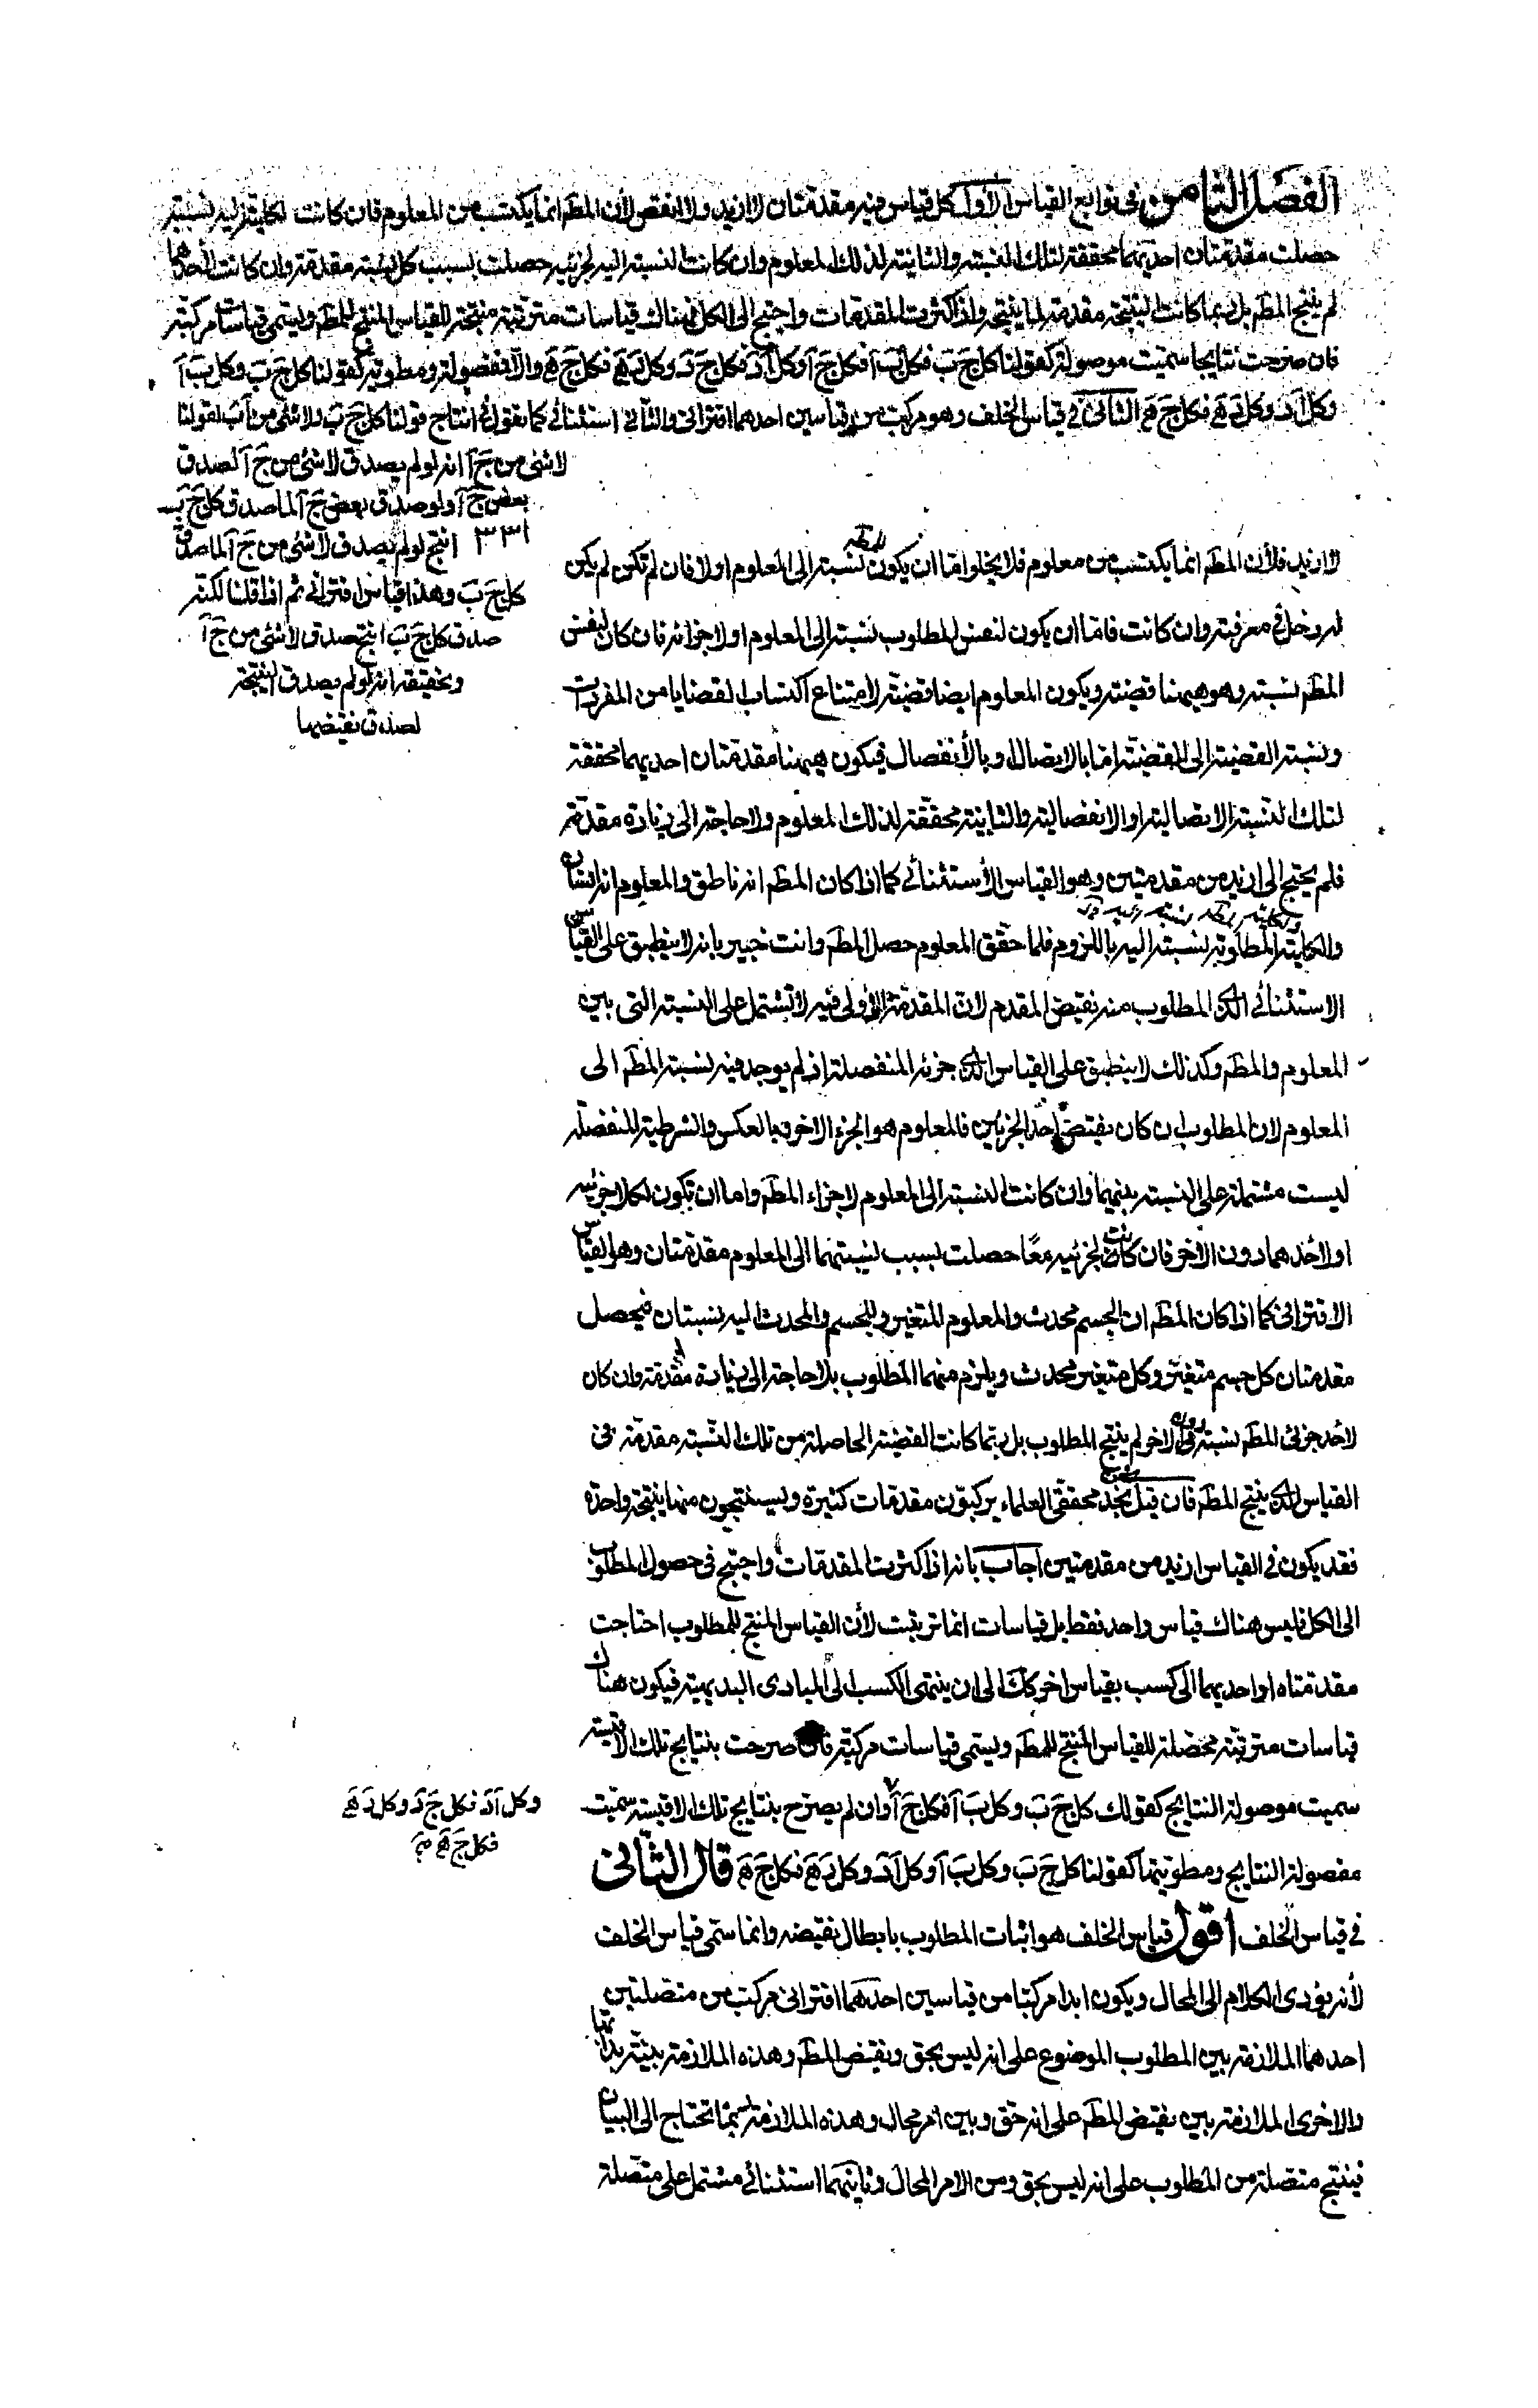 الفصل الثامن في توابع القياس الأول كل قياس فيه مقدمتان لا ازيد ولا انقص لأن المط انما يكتسب من المعلوم فان كانت لكليته اليه نسبته
حصلت مقدمتان احديهما محققة لتلك النسبة والثانية لذلك المعلوم وان كانت النسبة اليه لجزئيه حصلت بسبب كل نسبته مقدمة وان كانت لأحدهما
لم ينتج المط بل ربما كانت النتيجة مقدمة لما ينتجه واذا كثرت المقدمات واحتيج الى الكل فهناك قياسات مترتبة منتجة للقياس المنتج للمط ويسمى قياسات مركبة
فان صرحت نتايجها سميت موصولة كقولنا كل ج ب فكل ب آ فكل ج آ وكل آد فكل ج د وكل د ه فكل ج ه والا مفصولة ومطوية كقولنا كل ج ب وكل ب آ
وكل آد وكل د ه فكل ج ه الثاني في قياس الخلف وهو مركب من قياسين احدهما اقتراني والثاني استثنائي كما نقول في انتاج قولنا كل ج ب ولا شئ من آب لقولنا
لا شئ من ج آ انه لو لم يصدق لا شئ من ج آ لصدق
بعض ج آ ولو صدق بعض ج آ لما صدق كل ج ب
٣٣١ انتج لو لم يصدق لا شئ من ج آ لما صدق
كل ج ب وهذا قياس اقتراني ثم اذا قلنا لكنه
صدق كل ج ب انتج صدق لا شئ من ج آ
وتحقيقه انه لو لم يصدق النتيجة
لصدق نقيضها
لا ازيد فلأن المط انما يكتسب من معلوم فلا يخلو اما ان يكون للمط نسبة الى المعلوم اولا فان لم تكن لم يكن
له دخل في معرفته وان كانت فاما ان يكون لنفس المطلوب نسبة الى المعلوم او لاجزائه فان كان لنفس
المط نسبة وهو ههنا قضية ويكون المعلوم ايضا قضية لامتناع اكتساب القضايا من المفردات
ونسبة القضية الى القضية اما بالاتصال او بالأنفصال فيكون ههنا مقدمتان احديهما محققة
لتلك النسبة الاتصالية او الانفصالية والثانية محققة لذلك المعلوم ولا حاجة الى زيادة مقدمة
فلم يحتج الى ازيد من مقدمتين وهو القياس الأستثنائي كما اذا كان المط انه ناطق والمعلوم انه انسان
والكلية المطلوبة نسبة اليه باللزوم فلما حقق المعلوم حصل المط وانت خبير بانه لا ينطبق على القياس
الاستثنائي الذى المطلوب منه نقيض المقدم لان المقدمة الأولى فيه لا تشتمل على النسبة التي بين
المعلوم والمط وكذلك لا ينطبق على القياس الذى جزئه المنفصلة اذ لم يوجد فيه نسبة المط الى
المعلوم لان المطلوب ان كان نقيض احد الجزئين فالمعلوم هو الجزء الاخر وبالعكس والشرطية المنفصلة
ليست مشتملة على النسبة بينهما وان كانت النسبة الى المعلوم لاجزاء المط واما ان تكون لكلا جزئيه
او لأحدهما دون الاخر فان كانت لجزئيه معًا حصلت بسبب نسبتهما الى المعلوم مقدمتان وهو القياس
الاقتراني كما اذا كان المط ان الجسم محدث والمعلوم المتغير وللجسم والمحدث اليه نسبتان فيحصل
مقدمتان كل جسم متغير وكل متغير محدث ويلزم منهما المطلوب بلا حاجة الى زيادة مقدمة وان كان
لأحد جزئى المط نسبة دون الاخر لم ينتج المطلوب بل ربما كانت القضية الحاصلة من تلك النسبة مقدمة في
القياس الذى ينتج المط فان قيل نجد محققي العلماء يركبون مقدمات كثيرة ويستنتجون منها نتيجة واحدة
فقد يكون في القياس ازيد من مقدمتين اجاب بانه اذا كثرت المقدمات واحتيج في حصول المطلوب
الى الكل فليس هناك قياس واحد فقط بل قياسات انما ترتبت لأن القياس المنتج للمطلوب احتاجت
مقدمتاه او احديهما الى كسب بقياس اخر كك الى ان ينتهى الكسب الى المبادى البديهية فيكون هناك
قياسات مترتبة محصلة للقياس المنتج للمط ويسمى قياسات مركبة فان صرحت بنتايج تلك الاقيسة
سميت موصولة النتايج كقولك كل ج ب وكل ب آ فكل ج آ وان لم يصرح بنتايج تلك الاقيسة سميت
وكل آد فكل ج د وكل د ه
فكل ج ه
مفصولة النتايج ومطويتها كقولنا كل ج ب وكل ب آ وكل آد وكل د ه فكل ج ه قال الثاني
في قياس الخلف اقول قياس الخلف هو اثبات المطلوب بابطال نقيضه وانما سمى قياس الخلف
لأنه يؤدى الكلام الى المحال ويكون ابدا مركبا من قياسين احدهما اقترانى مركب من متصلتين
احدهما الملازمة بين المطلوب الموضوع على انه ليس بحق ونقيض المط وهذه الملازمة بينة بذاتها
والاخرى الملازمة بين نقيض المط على انه حق وبين امر محال وهذه الملازمة ربما تحتاج الى البيان
فينتج متصلة من المطلوب على انه ليس بحق ومن الامر المحال وثانيهما استثنائي مشتمل على متصلة